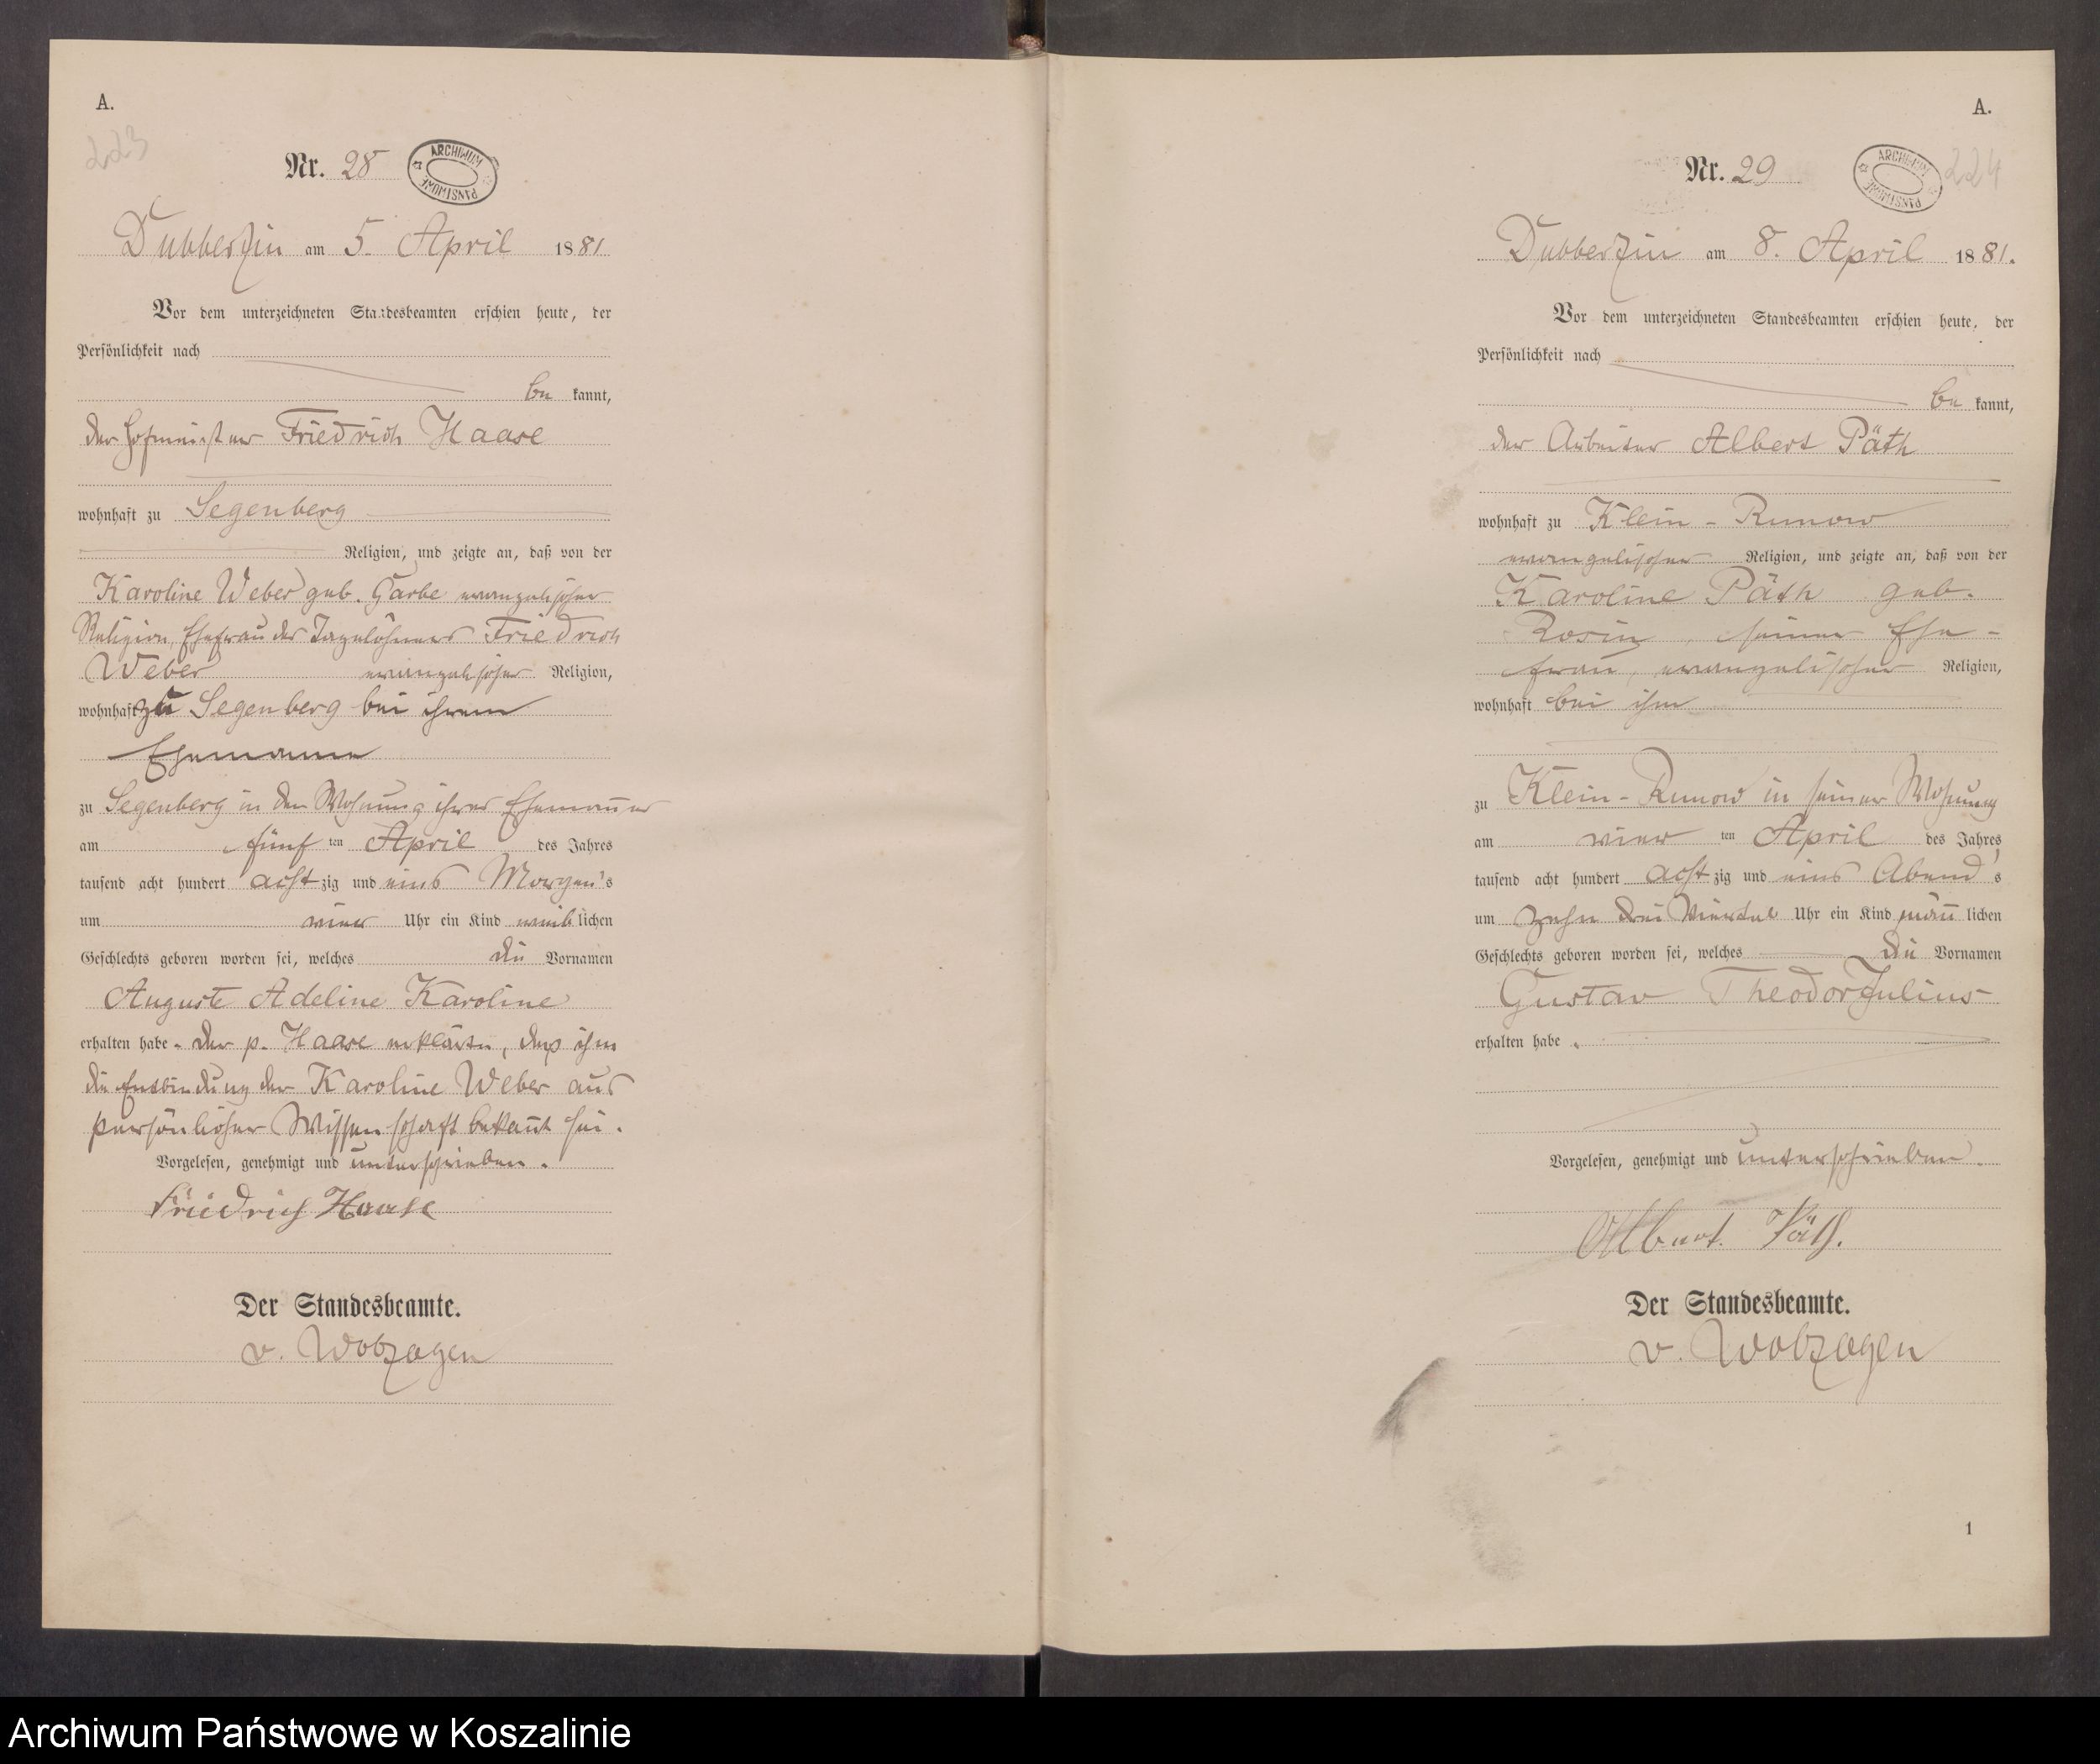 A.
223
Nr. 28
ARCHIWUM PAŃSTWOWE
Dubberzin am 5. April 1881
Vor dem unterzeichneten Standesbeamten erschien heute, der
Persönlichkeit nach
be kannt,
der Hofmeister Friedrich Haase
wohnhaft zu Segenberg
Religion, und zeigte an, daß von der
Karoline Weber geb. Garbe evangelischer
Religion, Ehefrau des Tagelöhners Friedrich
Weber evangelischer Religion,
wohnhaft zu Segenberg bei ihrem
Ehemanne
zu Segenberg in der Wohnung ihres Ehemannes
am fünf ten April des Jahres
tausend acht hundert acht zig und eins Morgen's
um vier Uhr ein Kind weib lichen
Geschlechts geboren worden sei, welches die Vornamen
Auguste Adeline Karoline
erhalten habe. Der p. Haase erklärte, daß ihm
die Entbindung der Karoline Weber aus
persönlicher Wissenschaft bekannt sei.
Vorgelesen, genehmigt und unterschrieben.
Friedrich Haase
Der Standesbeamte.
v. Wobzogen
A.
224
Nr. 29
ARCHIWUM PAŃSTWOWE
Dubberzin am 8. April 1881.
Vor dem unterzeichneten Standesbeamten erschien heute, der
Persönlichkeit nach
be kannt,
der Arbeiter Albert Päth
wohnhaft zu Klein-Runow
evangelischer Religion, und zeigte an, daß von der
Karoline Päth geb.
Rosin, seiner Ehe-
frau, evangelischer Religion,
wohnhaft bei ihm
zu Klein-Runow in seiner Wohnung
am vier ten April des Jahres
tausend acht hundert acht zig und eins Abend's
um zehn drei Viertel Uhr ein Kind männ lichen
Geschlechts geboren worden sei, welches die Vornamen
Gustav Theodor Julius
erhalten habe.
Vorgelesen, genehmigt und unterschrieben.
Albert Päth.
Der Standesbeamte.
v. Wobzogen
1
Archiwum Państwowe w Koszalinie